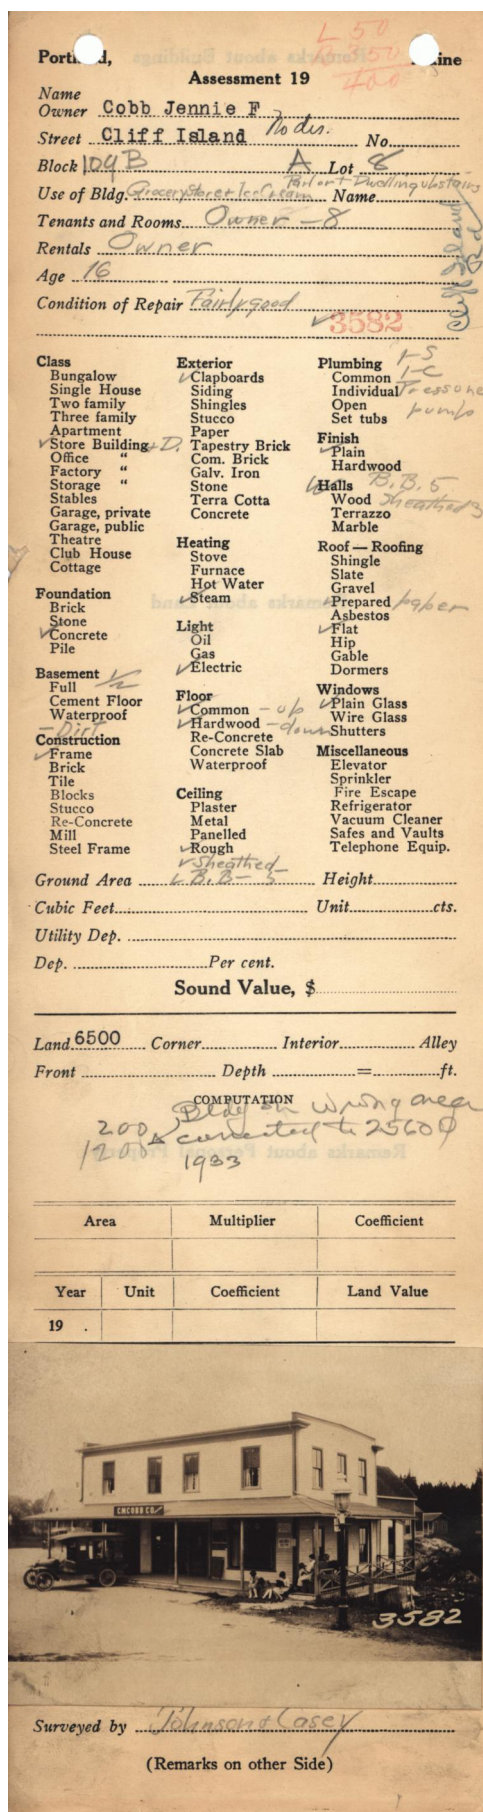 L 50
B 350
400
Portland, Maine
Assessment 19
Name
Owner Cobb Jennie F
Street Cliff Island No des. No.
Block 109B A Lot 8
Use of Bldg. Grocery Store + Ice Cream Parlor + Dwelling upstairs Name
Tenants and Rooms Owner - 8
Rentals Owner
Age 16
Condition of Repair Fairly good
Cliff Island Rd
✓3582
Class
Bungalow
Single House
Two family
Three family
Apartment
✓Store Building + D.
Office "
Factory "
Storage "
Stables
Garage, private
Garage, public
Theatre
Club House
Cottage
Foundation
Brick
Stone
✓Concrete
Pile
Basement 1/2
Full
Cement Floor
Waterproof
- Dirt
Construction
✓Frame
Brick
Tile
Blocks
Stucco
Re-Concrete
Mill
Steel Frame
Exterior
✓Clapboards
Siding
Shingles
Stucco
Paper
Tapestry Brick
Com. Brick
Galv. Iron
Stone
Terra Cotta
Concrete
Heating
Stove
Furnace
Hot Water
✓Steam
Light
Oil
Gas
✓Electric
Floor
✓Common - up
✓Hardwood - down
Re-Concrete
Concrete Slab
Waterproof
Ceiling
Plaster
Metal
Panelled
✓Rough
✓Sheathed
B.B - 5
Plumbing 1-S
Common 1-C
Individual Pressure
Open pump
Set tubs
Finish
✓Plain
Hardwood
Halls B.B. 5
Wood Sheathed 3
Terrazzo
Marble
Roof — Roofing
Shingle
Slate
Gravel
✓Prepared paper
Asbestos
✓Flat
Hip
Gable
Dormers
Windows
✓Plain Glass
Wire Glass
Shutters
Miscellaneous
Elevator
Sprinkler
Fire Escape
Refrigerator
Vacuum Cleaner
Safes and Vaults
Telephone Equip.
Ground Area Height
Cubic Feet Unit cts.
Utility Dep.
Dep. Per cent.
Sound Value, $
Land 6500 Corner Interior Alley
Front Depth = ft.
COMPUTATION
Bldg on wrong area
200 corrected to 2560
1200 1933
Area Multiplier Coefficient
Year Unit Coefficient Land Value
19 .
C.W. COBB CO.
3582
Surveyed by Johnson & Casey
(Remarks on other Side)